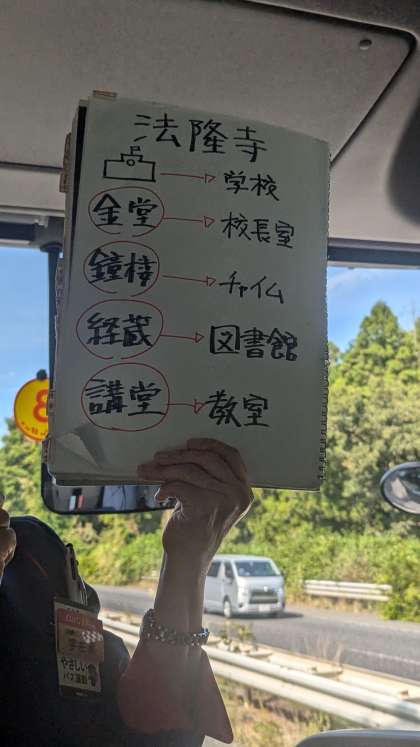 法隆寺
→ 学校
金堂 → 校長室
鐘楼 → チャイム
経蔵 → 図書館
講堂 → 教室
8
やさしい
バス運動